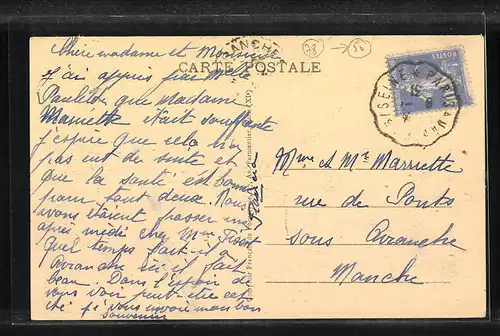 Chère madame et Monsieur
J'ai appris par Mme
Paulton que madame
Marriette était souffrante
j'espère que cela n'a
pas eut de suite et
que la santé est bonne
pour tout deux. Nous
avons étaient passer un
après midi chez Mme Tissot
Quel temps fait-il à
Avranche ici il fait
beau. Dans l'espoir de
vous voir peut-être cet
été. je vous envoie mon bon
souvenir
CARTE POSTALE
78 → 50
POSTES
Mme et Mr Marriette
rue de Ponts
sous Avranche
Manche